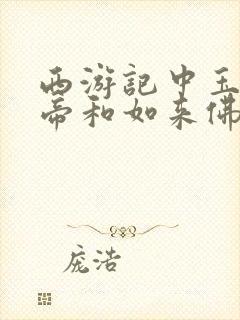 西游記中玉
帝和如来佛
庞浩